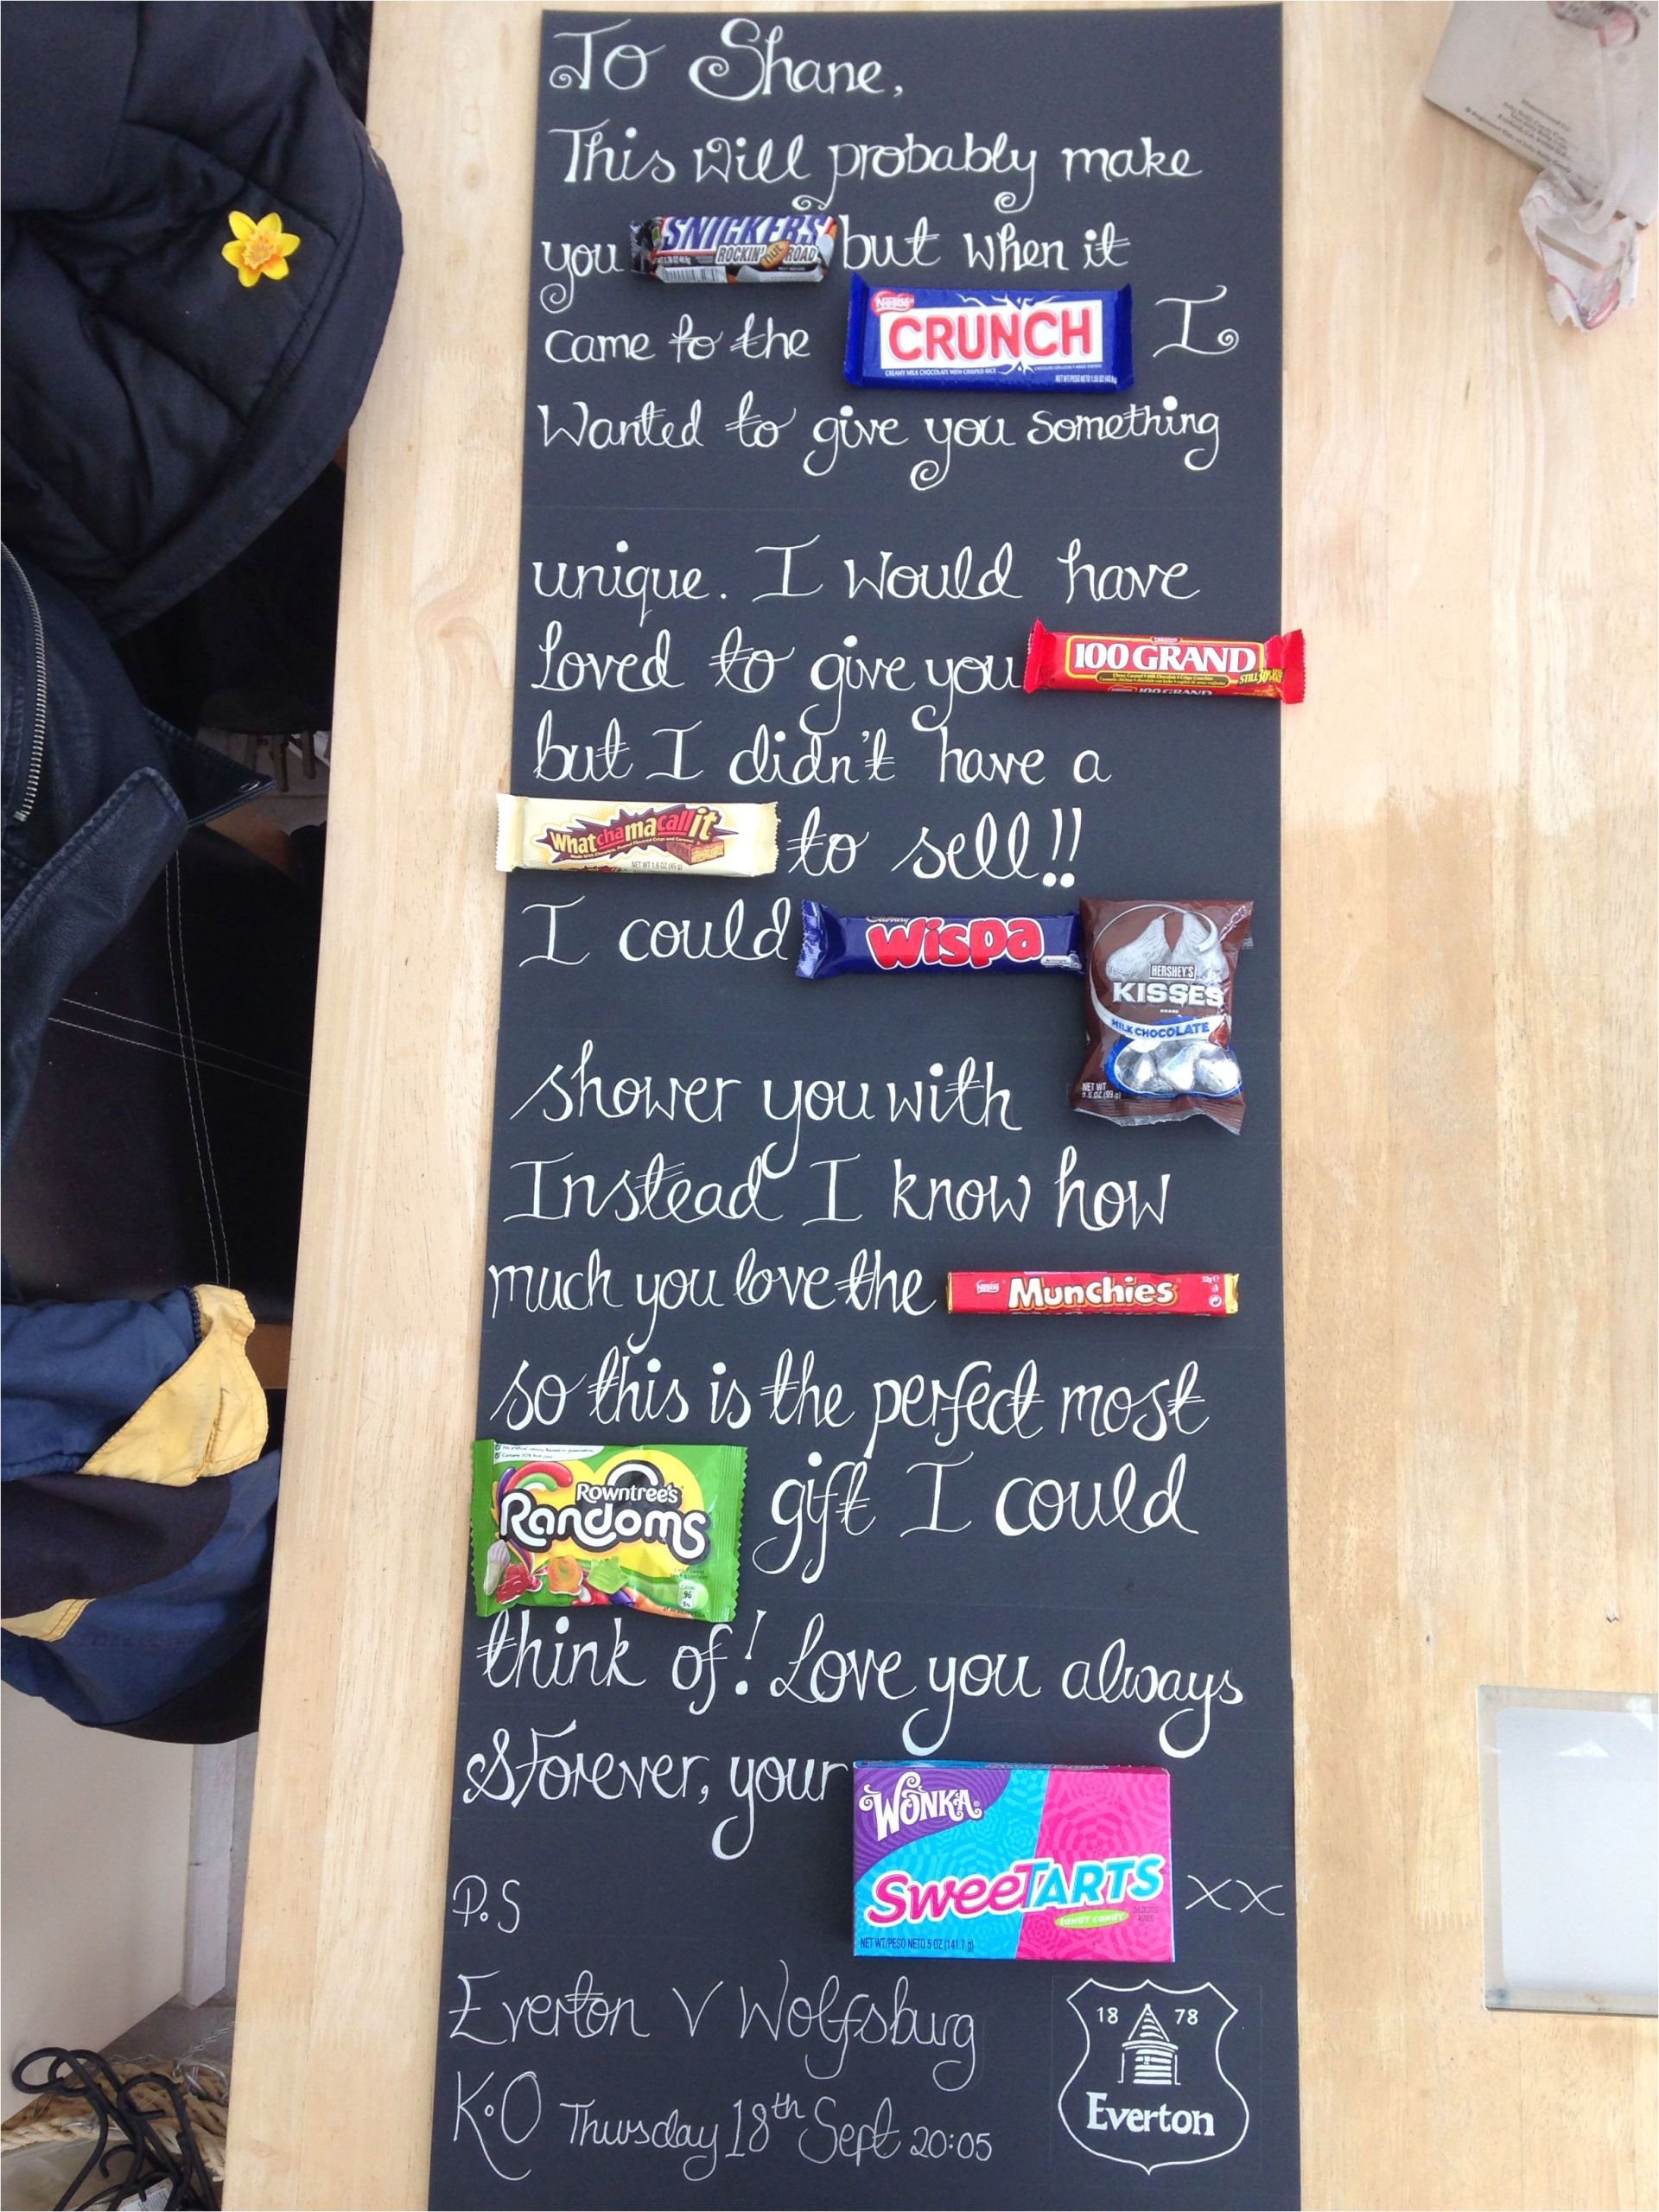 To Shane,
This will probably make
you SNICKERS ROCKIN' NUT ROAD but when it
came to the Nestlé CRUNCH I
CREAMY MILK CHOCOLATE WITH CRISPED RICE
Wanted to give you something
unique. I would have
loved to give you 100 GRAND
but I didn't have a
Whatchamacallit to sell!!
NET WT 1.6 OZ (45 g)
I could Cadbury Wispa HERSHEY'S KISSES BRAND MILK CHOCOLATE
shower you with
Instead I know how
much you love the Nestlé Munchies
so this is the perfect most
Rowntree's Randoms gift I could
think of! Love you always
& Forever, your WONKA SweeTARTS TANGY CANDY xx
NET WT/PESO NETO 5 OZ (141.7 g)
P.S
Everton V Wolfsburg
K.O Thursday 18th Sept 20:05
18 78
Everton